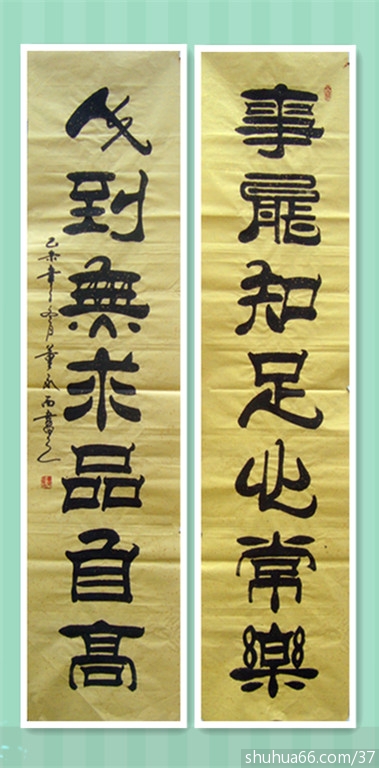 事能知足心常樂
人到無求品自高
未年冬月董
shuhua66.com/37